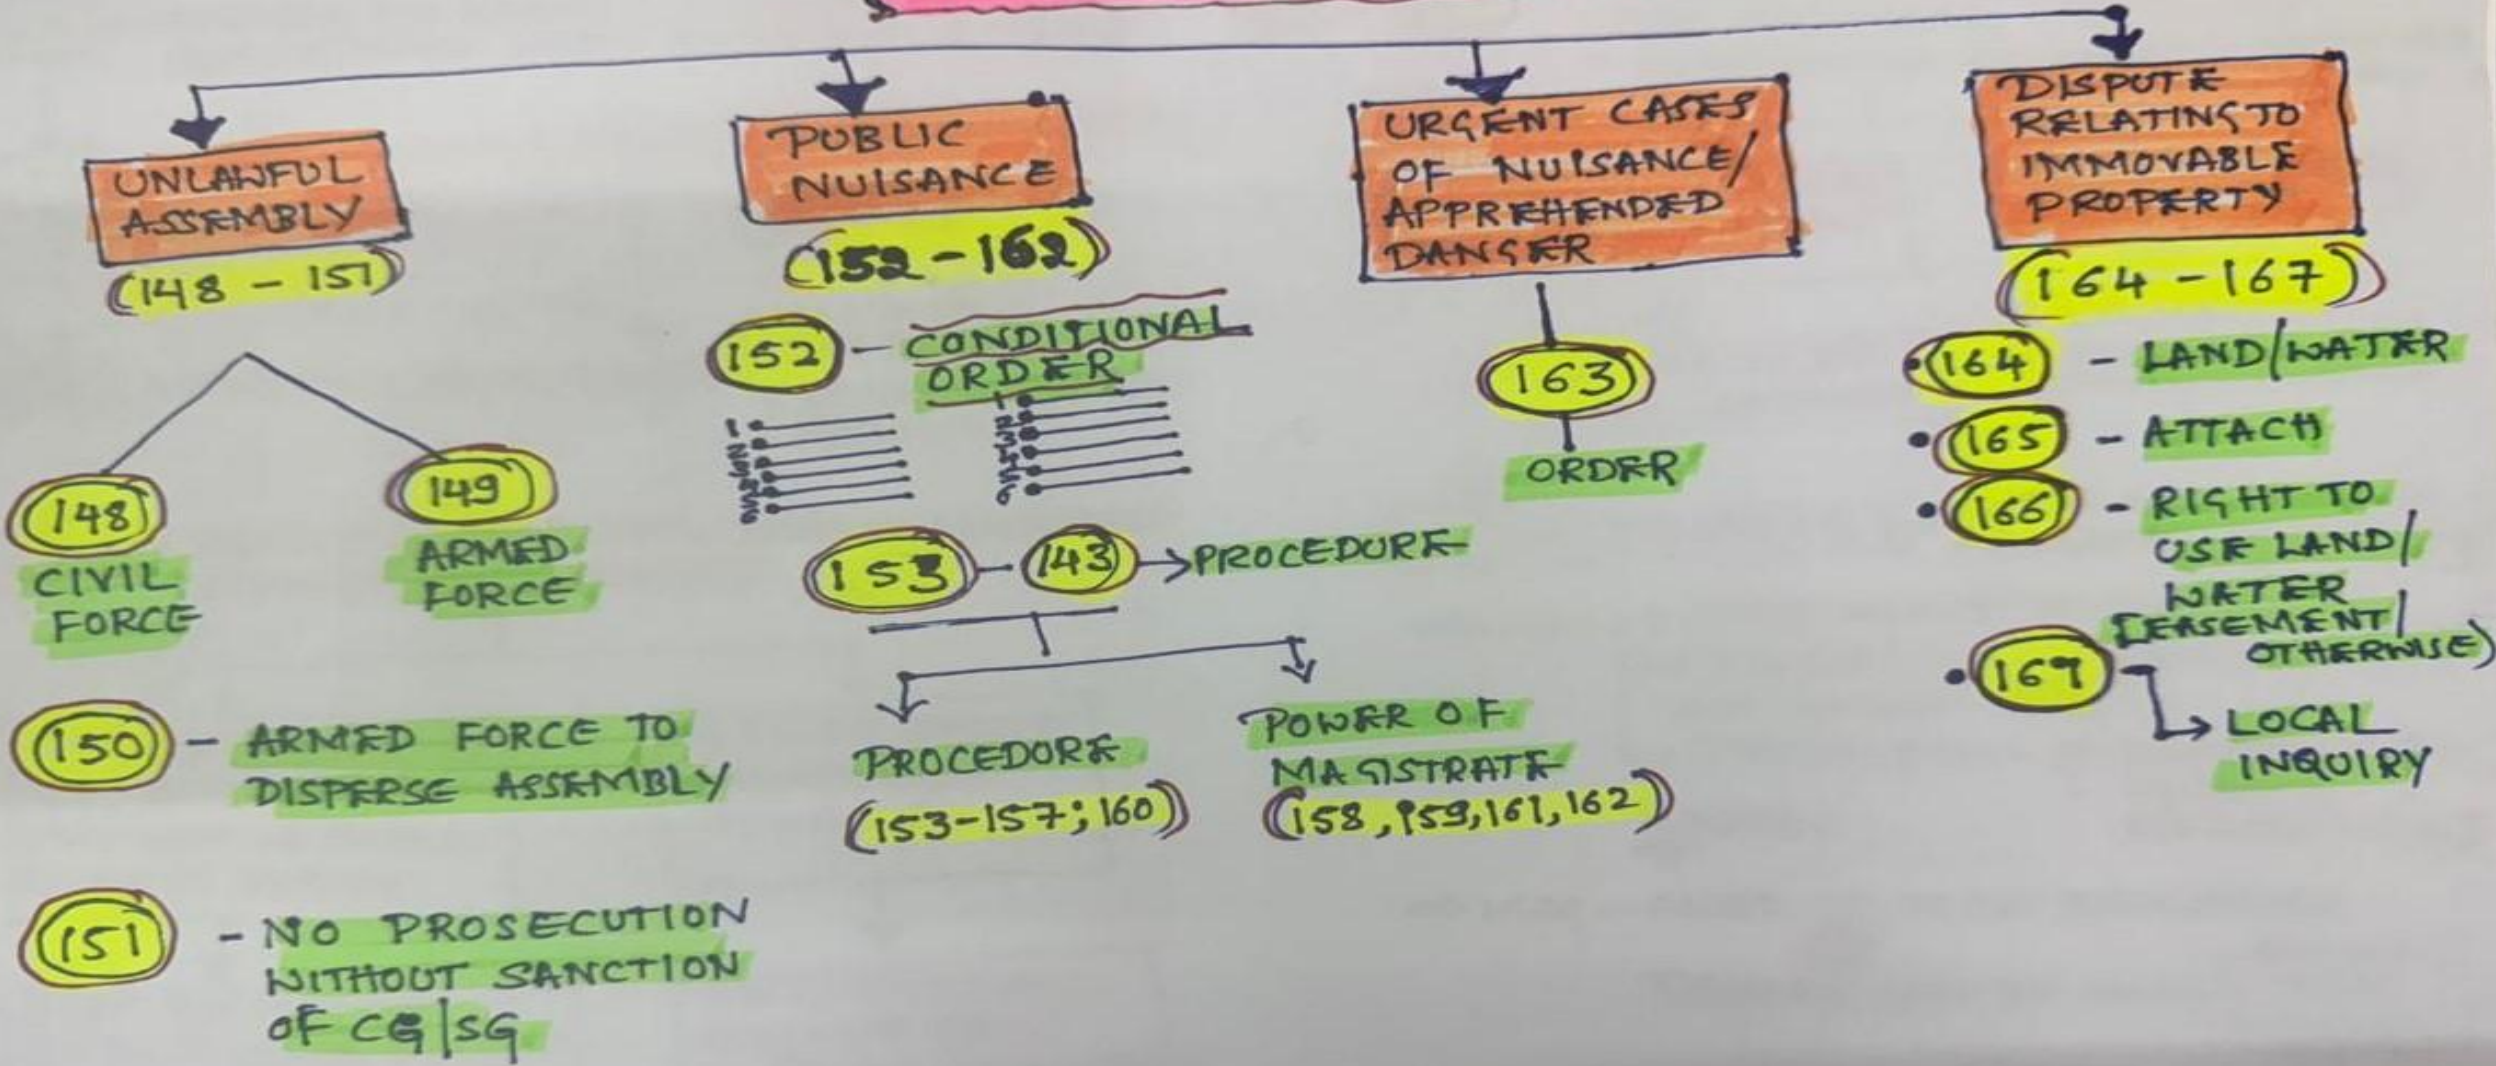 UNLAWFUL
ASSEMBLY
(148 - 151)
148
CIVIL
FORCE
149
ARMED
FORCE
150 - ARMED FORCE TO
DISPERSE ASSEMBLY
151 - NO PROSECUTION
WITHOUT SANCTION
OF CG/SG
PUBLIC
NUISANCE
(152-162)
152 - CONDITIONAL
ORDER
1
2
3
4
5
6
1
2
3
4
5
6
153 - 143 → PROCEDURE
PROCEDURE
(153-157; 160)
POWER OF
MAGISTRATE
(158, 159, 161, 162)
URGENT CASES
OF NUISANCE/
APPREHENDED
DANGER
163
ORDER
DISPUTE
RELATING TO
IMMOVABLE
PROPERTY
(164-167)
• 164 - LAND/WATER
• 165 - ATTACH
• 166 - RIGHT TO
USE LAND/
WATER
[EASEMENT/
OTHERWISE)
• 167
LOCAL
INQUIRY